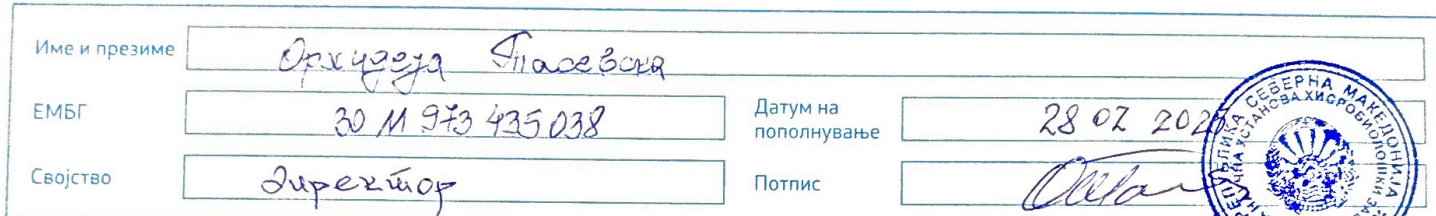 Име и презиме Орхидеја Тасевска
ЕМБГ 30 11 973 435038 Датум на пополнување 28 02 2025
Својство Директор Потпис
РЕПУБЛИКА СЕВЕРНА МАКЕДОНИЈА
УСТАНОВА ХИДРОБИОЛОШКИ